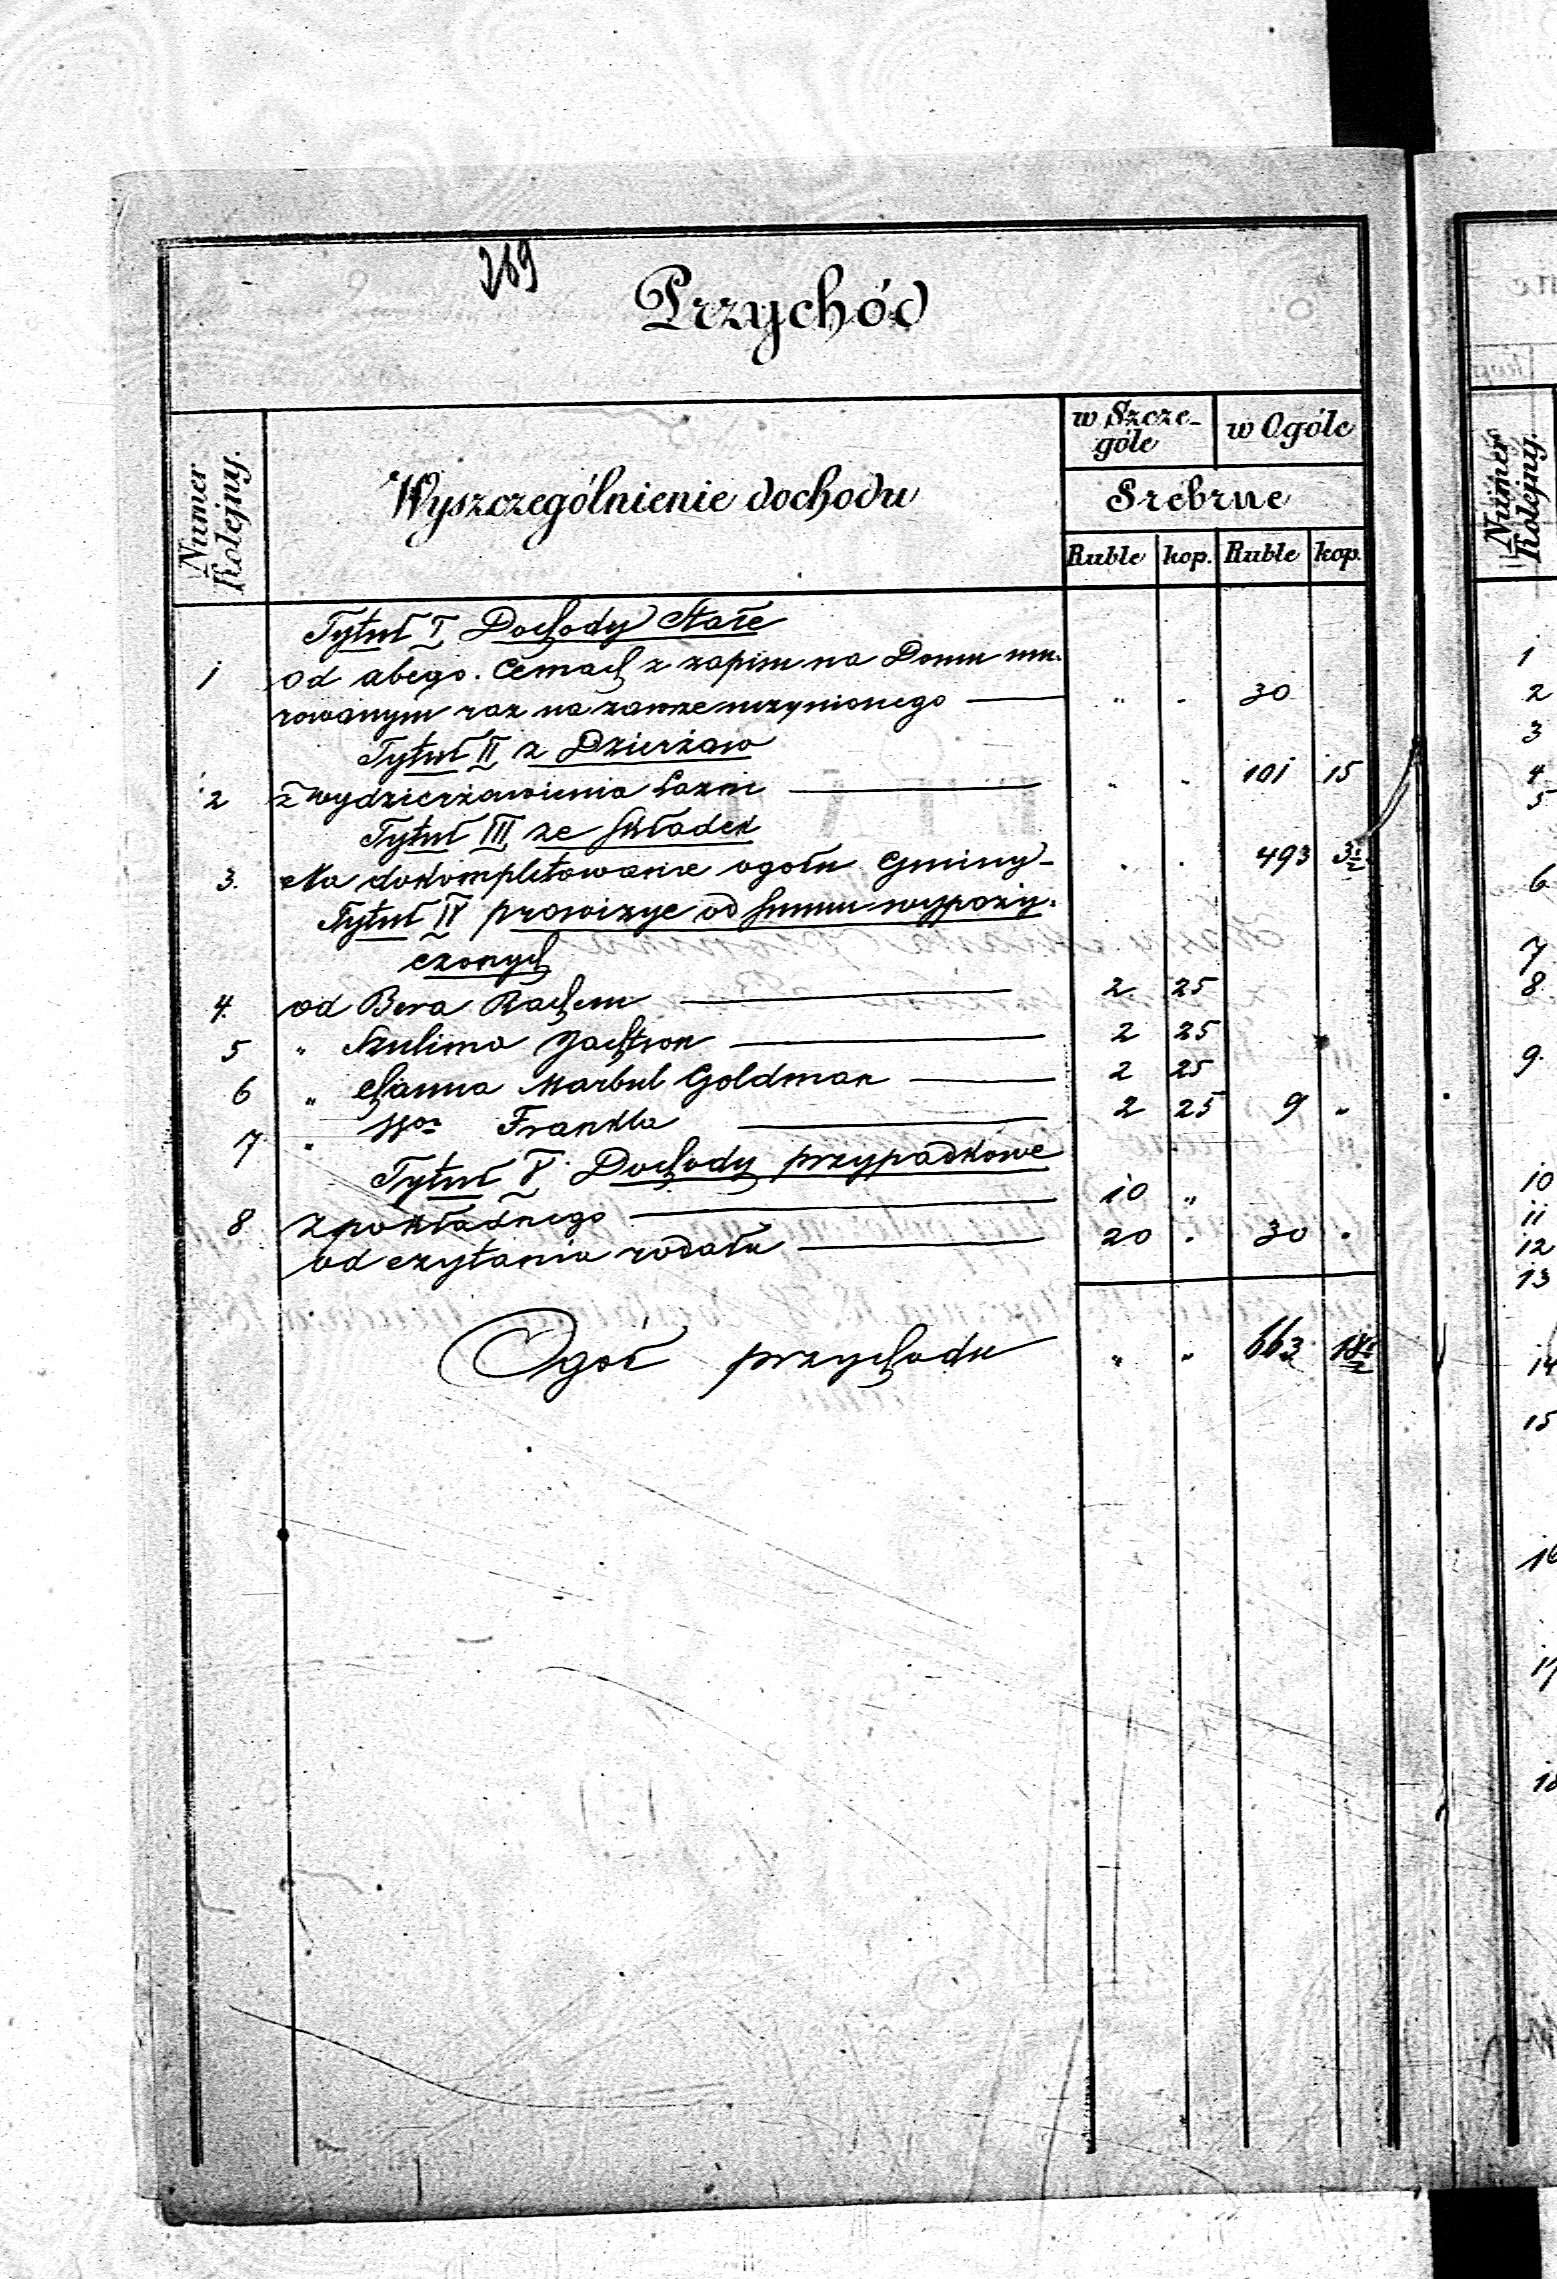 269
Przychód
Numer Kolejny.
Wyszczególnienie dochodu
w Szcze-
góle
w Ogóle
Srebrne
Ruble kop. Ruble kop.
Tytuł I Dochody Stałe
1 Od abego. Cemach z zapisu na Domu mu-
rowanym raz na zawsze uczynionego — " . 30
Tytuł II z Dzierżaw
2 z wydzierżawienia Łazni — " . 101 15
Tytuł III ze składek
3. Na dokompletowanie ogołu Gminy - . . 493 3½
Tytuł IV prowizye od Summ wypoży-
czonych
4. od Bera Rachem — 2 25
5 " Szulima Jachtron — 2 25
6 " Chaima Marbul Goldman — 2 25
7 " Frankla — 2 25 9 "
Tytuł V. Dochody przypadkowe
8 z pokładnego — 10 "
od czytania rodału — 20 . 30 .
Ogół przychodu " " 663 18½
Numer Kolejny.
1
2
3
4
5
6
7
8
9.
10
11
12
13
14
15